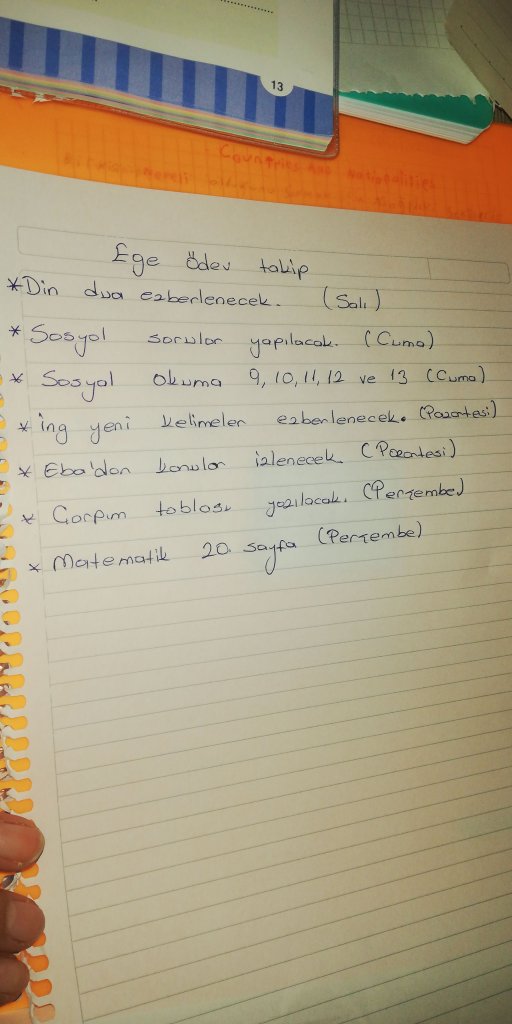 13
Countries And Nationalities
Ege ödev takip
*Din dua ezberlenecek. (Salı)
* Sosyal sorular yapılacak. (Cuma)
* Sosyal okuma 9, 10, 11, 12 ve 13 (Cuma)
* ing yeni kelimeler ezberlenecek. (Pazartesi)
* Eba'dan konular izlenecek. (Pazartesi)
* Çarpım tablosu yazılacak. (Perşembe)
* Matematik 20. sayfa (Perşembe)